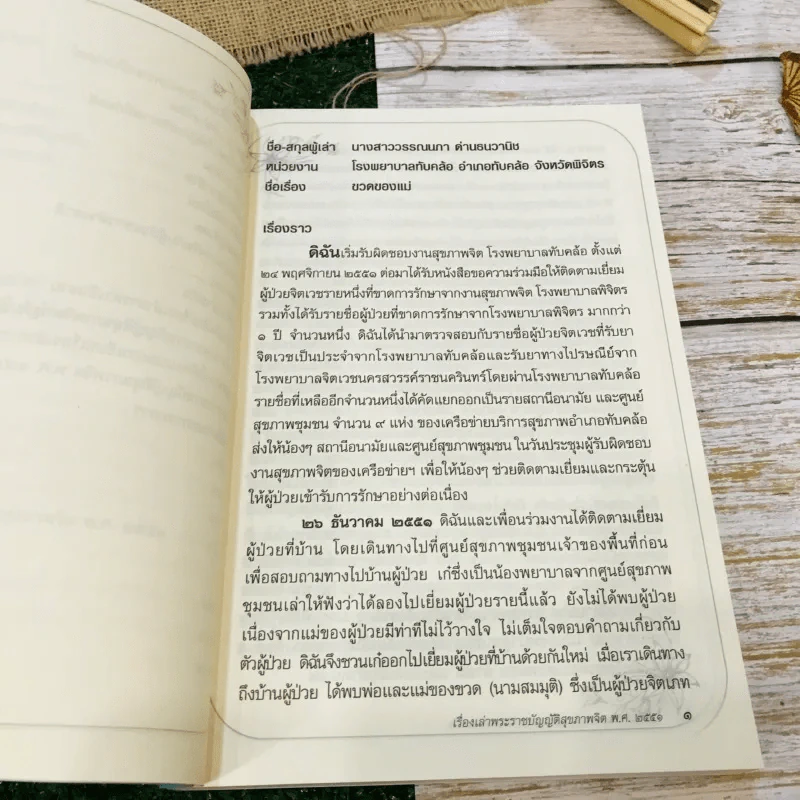 ชื่อ-สกุลผู้เล่า นางสาววรรณนภา ด่านธนวานิช
หน่วยงาน โรงพยาบาลทับคล้อ อำเภอทับคล้อ จังหวัดพิจิตร
ชื่อเรื่อง ขวดของแม่
เรื่องราว
ดิฉันเริ่มรับผิดชอบงานสุขภาพจิต โรงพยาบาลทับคล้อ ตั้งแต่
๒๔ พฤศจิกายน ๒๕๕๑ ต่อมาได้รับหนังสือขอความร่วมมือให้ติดตามเยี่ยม
ผู้ป่วยจิตเวชรายหนึ่งที่ขาดการรักษาจากงานสุขภาพจิต โรงพยาบาลพิจิตร
รวมทั้งได้รับรายชื่อผู้ป่วยที่ขาดการรักษาจากโรงพยาบาลพิจิตร มากกว่า
๑ ปี จำนวนหนึ่ง ดิฉันได้นำมาตรวจสอบกับรายชื่อผู้ป่วยจิตเวชที่รับยา
จิตเวชเป็นประจำจากโรงพยาบาลทับคล้อและรับยาทางไปรษณีย์จาก
โรงพยาบาลจิตเวชนครสวรรค์ราชนครินทร์โดยผ่านโรงพยาบาลทับคล้อ
รายชื่อที่เหลืออีกจำนวนหนึ่งได้คัดแยกออกเป็นรายสถานีอนามัย และศูนย์
สุขภาพชุมชน จำนวน ๙ แห่ง ของเครือข่ายบริการสุขภาพอำเภอทับคล้อ
ส่งให้น้องๆ สถานีอนามัยและศูนย์สุขภาพชุมชน ในวันประชุมผู้รับผิดชอบ
งานสุขภาพจิตของเครือข่ายฯ เพื่อให้น้องๆ ช่วยติดตามเยี่ยมและกระตุ้น
ให้ผู้ป่วยเข้ารับการรักษาอย่างต่อเนื่อง
๒๖ ธันวาคม ๒๕๕๑ ดิฉันและเพื่อนร่วมงานได้ติดตามเยี่ยม
ผู้ป่วยที่บ้าน โดยเดินทางไปที่ศูนย์สุขภาพชุมชนเจ้าของพื้นที่ก่อน
เพื่อสอบถามทางไปบ้านผู้ป่วย เก๋ซึ่งเป็นน้องพยาบาลจากศูนย์สุขภาพ
ชุมชนเล่าให้ฟังว่าได้ลองไปเยี่ยมผู้ป่วยรายนี้แล้ว ยังไม่ได้พบผู้ป่วย
เนื่องจากแม่ของผู้ป่วยมีท่าทีไม่ไว้วางใจ ไม่เต็มใจตอบคำถามเกี่ยวกับ
ตัวผู้ป่วย ดิฉันจึงชวนเก๋ออกไปเยี่ยมผู้ป่วยที่บ้านด้วยกันใหม่ เมื่อเราเดินทาง
ถึงบ้านผู้ป่วย ได้พบพ่อและแม่ของขวด (นามสมมุติ) ซึ่งเป็นผู้ป่วยจิตเภท
เรื่องเล่าพระราชบัญญัติสุขภาพจิต พ.ศ. ๒๕๕๑ ๑